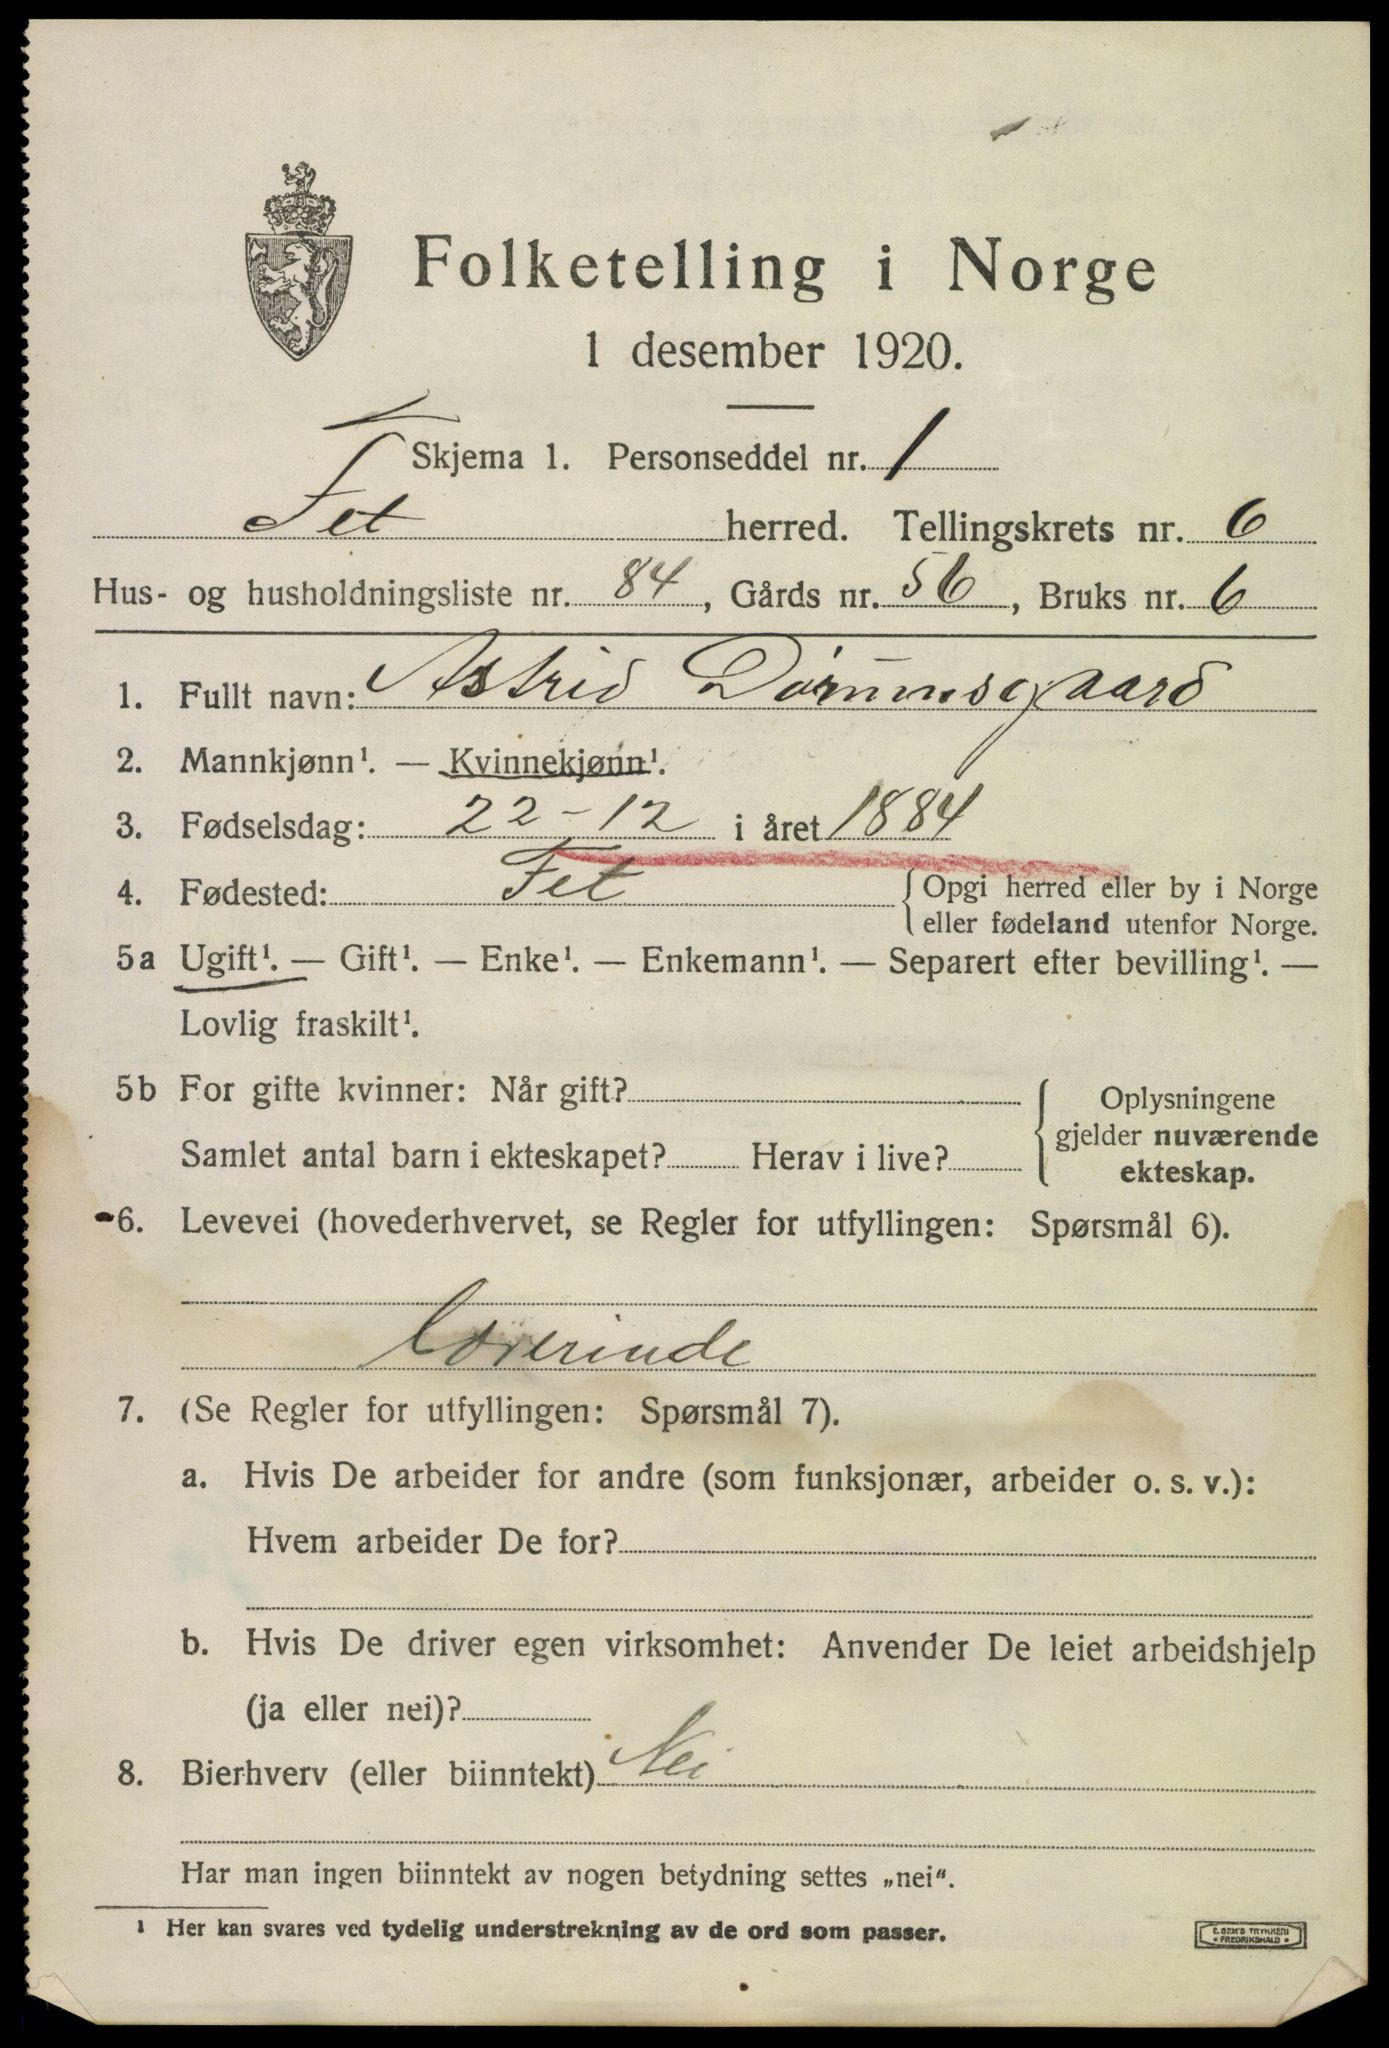 Folketelling i Norge
1 desember 1920.
Skjema 1. Personseddel nr. 1
Fet herred. Tellingskrets nr. 6
Hus- og husholdningsliste nr. 84, Gårds nr. 56, Bruks nr. 6
1. Fullt navn: Astrid Dørumsgaard
2. Mannkjønn¹. — Kvinnekjønn¹.
3. Fødselsdag: 22-12 i året 1884
4. Fødested: Fet Opgi herred eller by i Norge
eller fødeland utenfor Norge.
5a Ugift¹. — Gift¹. — Enke¹. — Enkemann¹. — Separert efter bevilling¹. —
Lovlig fraskilt¹.
5b For gifte kvinner: Når gift? Oplysningene
gjelder nuværende
Samlet antal barn i ekteskapet? Herav i live? ekteskap.
6. Levevei (hovederhvervet, se Regler for utfyllingen: Spørsmål 6).
Lærerinde
7. (Se Regler for utfyllingen: Spørsmål 7).
a. Hvis De arbeider for andre (som funksjonær, arbeider o. s. v.):
Hvem arbeider De for?
b. Hvis De driver egen virksomhet: Anvender De leiet arbeidshjelp
(ja eller nei)?
8. Bierhverv (eller biinntekt) Nei
Har man ingen biinntekt av nogen betydning settes „nei“.
¹ Her kan svares ved tydelig understrekning av de ord som passer.
E. SEM'S TRYKKERI
• FREDRIKSHALD •